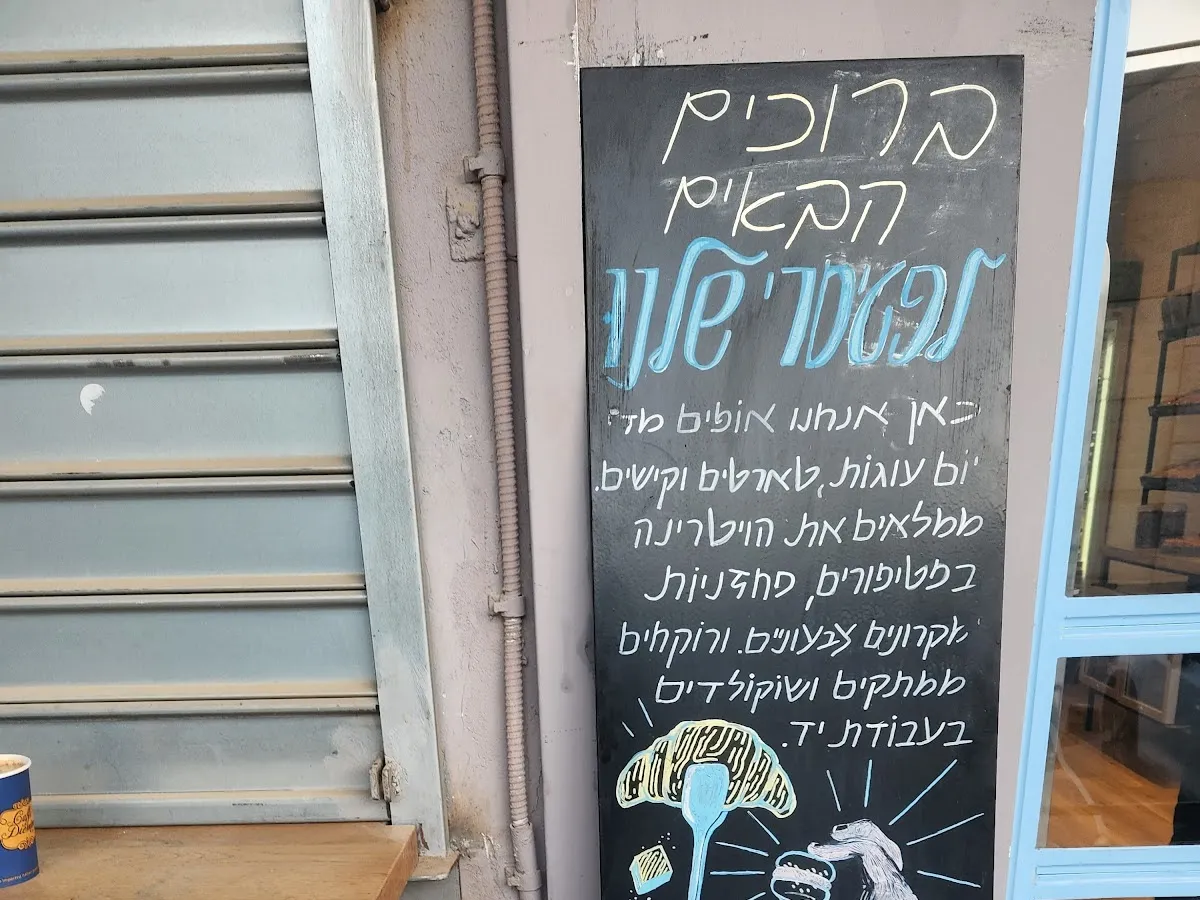 ברוכים
הבאים
לפטיסרי שלנו
כאן אנחנו אופים מדי
יום עוגות, טארטים וקישים.
ממלאים את הויטרינה
בפטיפורים, פחזניות
מקרונים צבעוניים. ורוקחים
ממתקים ושוקולדים
בעבודת יד.